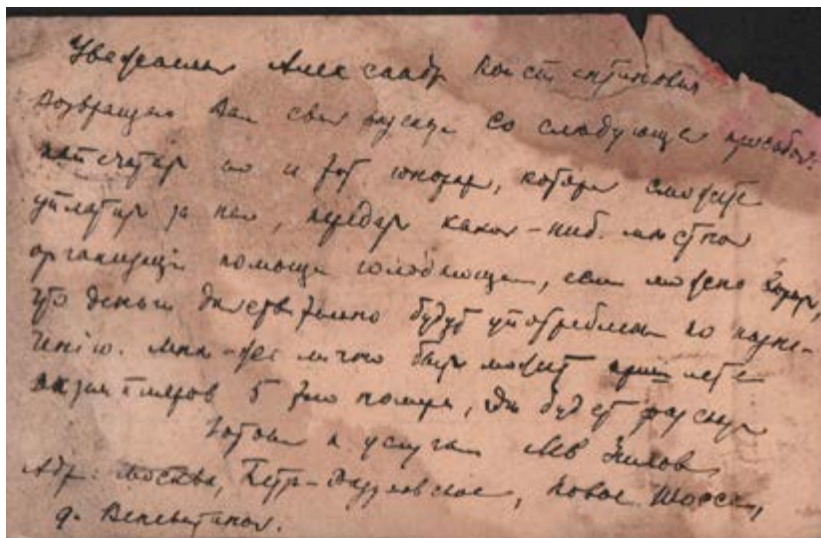 Уважаемый Александр Константинович
Возвращаю Вам свой рассказ со следующей просьбой:
напечатать его и тот гонорар, который сможете
уплатить за него, передать какой-ниб. местной
организаціи помощи голодающим, если можно
что деньги действительно будут употреблены по назна-
ченію. Мне-же лично быть может пришлете
экземпляров 5 того номера, где будет рассказ
Готовый к услугам Лев
Адр: Москва, Петр-Разумовское, Новое Шоссе,
д. Веневитинов.